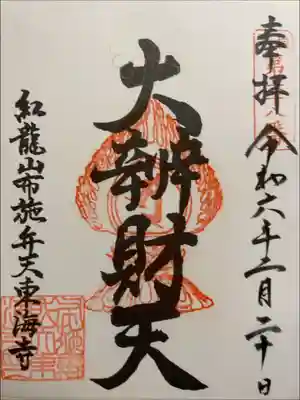 奉拝 令和六年二月二十日
大辨財天
紅龍山布施弁天東海寺